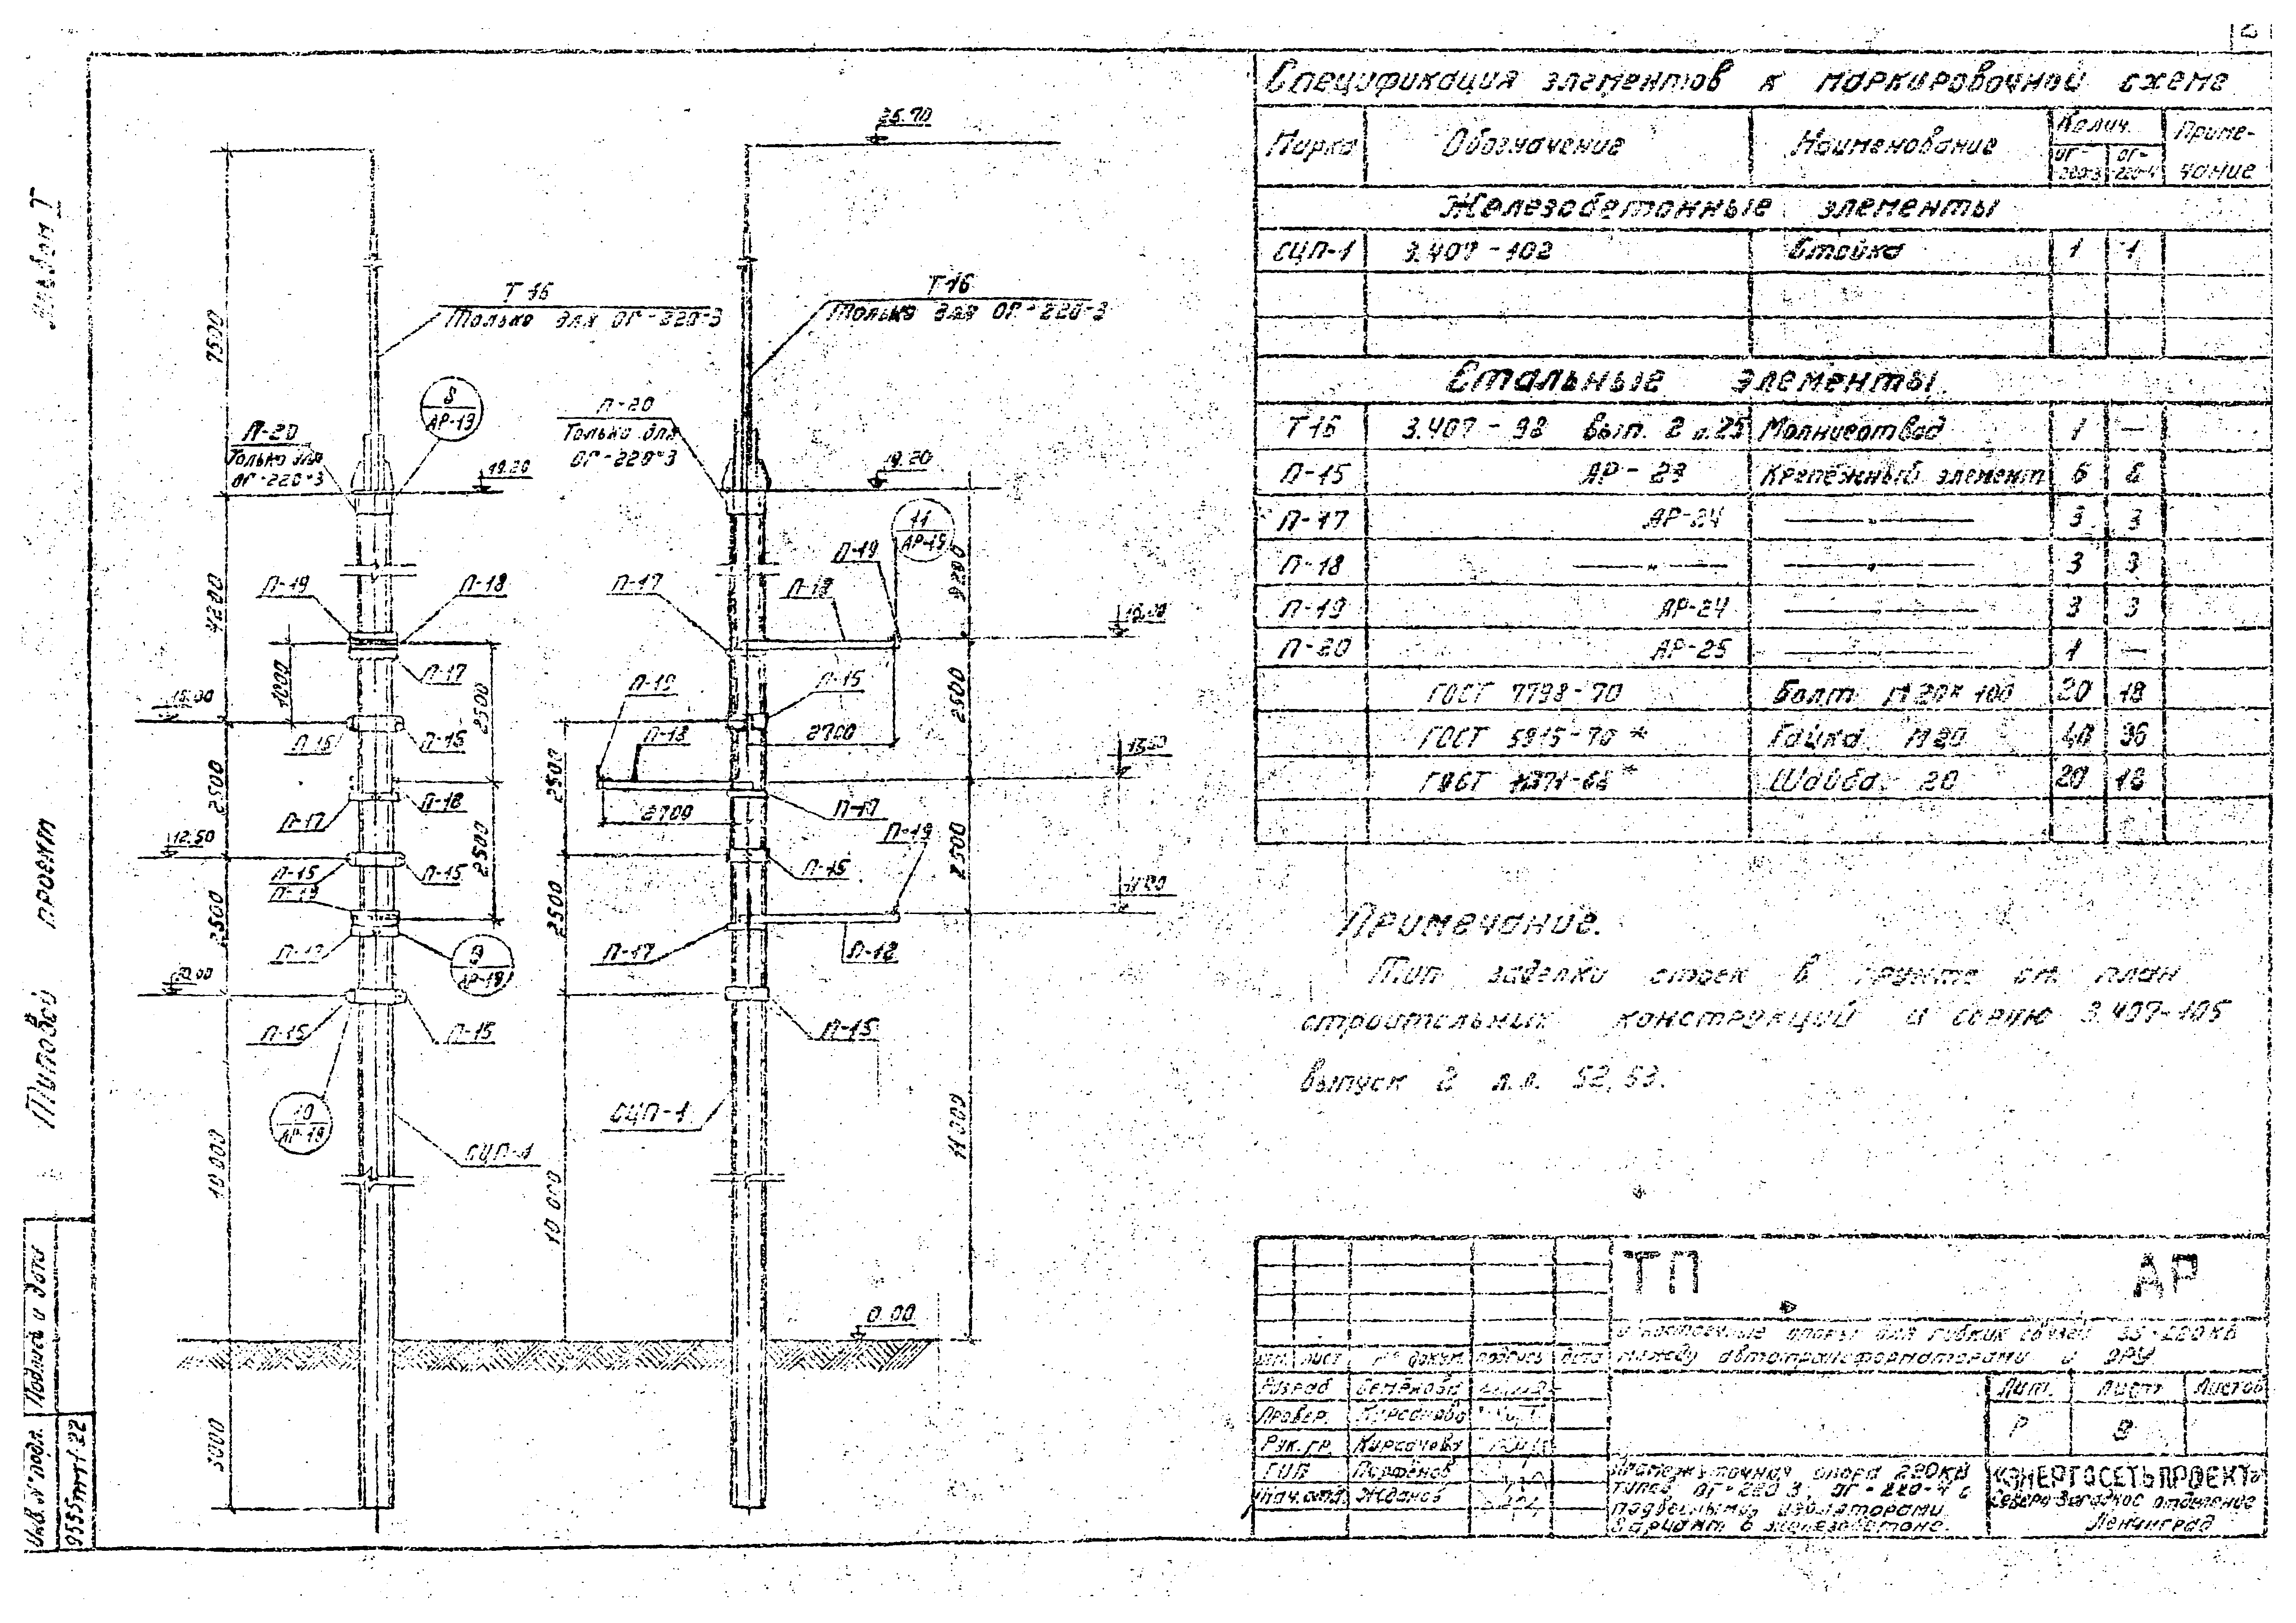 Альбом I
Типовой проект
Подпись и дата
Инв. № подл.
9555тт-22
26.70
7500
Т 16
Только для ОГ-220-3
Т 16
Только для ОГ-220-3
8
АР-19
П-20
Только для
ОГ-220-3
П-20
Только для
ОГ-220-3
19.20
19.20
11
АР-19
П-19
П-18
П-17
П-19
П-18
4200
9200
16.00
1000
П-17
2500
15.00
П-15
П-15
П-19
П-18
П-15
2700
2500
13.50
2500
П-17
П-18
2500
2700
П-17
П-19
2500
12.50
2500
П-15
П-19
П-15
П-15
2500
11.00
2500
П-17
9
АР-19
П-17
П-18
10.00
П-15
П-15
П-15
10
АР-19
СЦП-1
СЦП-1
10 000
10 000
11 000
0.00
3000
Спецификация элементов к маркировочной схеме
Марка Обозначение Наименование Колич. Приме-
чание
ОГ-220-3 ОГ-220-4
Железобетонные элементы
СЦП-1 3.407-102 Стойка 1 1
Стальные элементы
Т 16 3.407-98 вып. 2 л.25 Молниеотвод 1 —
П-15 АР-23 Крепёжный элемент 6 6
П-17 АР-24 —"— 3 3
П-18 —"— —"— 3 3
П-19 АР-24 —"— 3 3
П-20 АР-25 —"— 1 —
ГОСТ 7798-70 Болт М20×100 20 18
ГОСТ 5915-70* Гайка М20 40 36
ГОСТ 11371-68* Шайба 20 20 18
Примечание.
Тип заделки стоек в грунте см. план
строительных конструкций и серию 3.407-105
выпуск 2 л.л. 52, 53.
ТП АР
Одностоечные опоры для гибких связей 35-220кВ
между автотрансформаторами и ОРУ
Изм. Лист № докум. Подпись Дата
Разраб Семёнова
Провер. Кирсанова
Рук. гр. Кирсанова
ГИП Парфёнов
Нач. отд. Жданов
Лит. Лист Листов
Р 9
Промежуточная опора 220кВ
типа ОГ-220-3, ОГ-220-4 с
подвесными изоляторами
Вариант в железобетоне.
«ЭНЕРГОСЕТЬПРОЕКТ»
Северо-Западное отделение
Ленинград